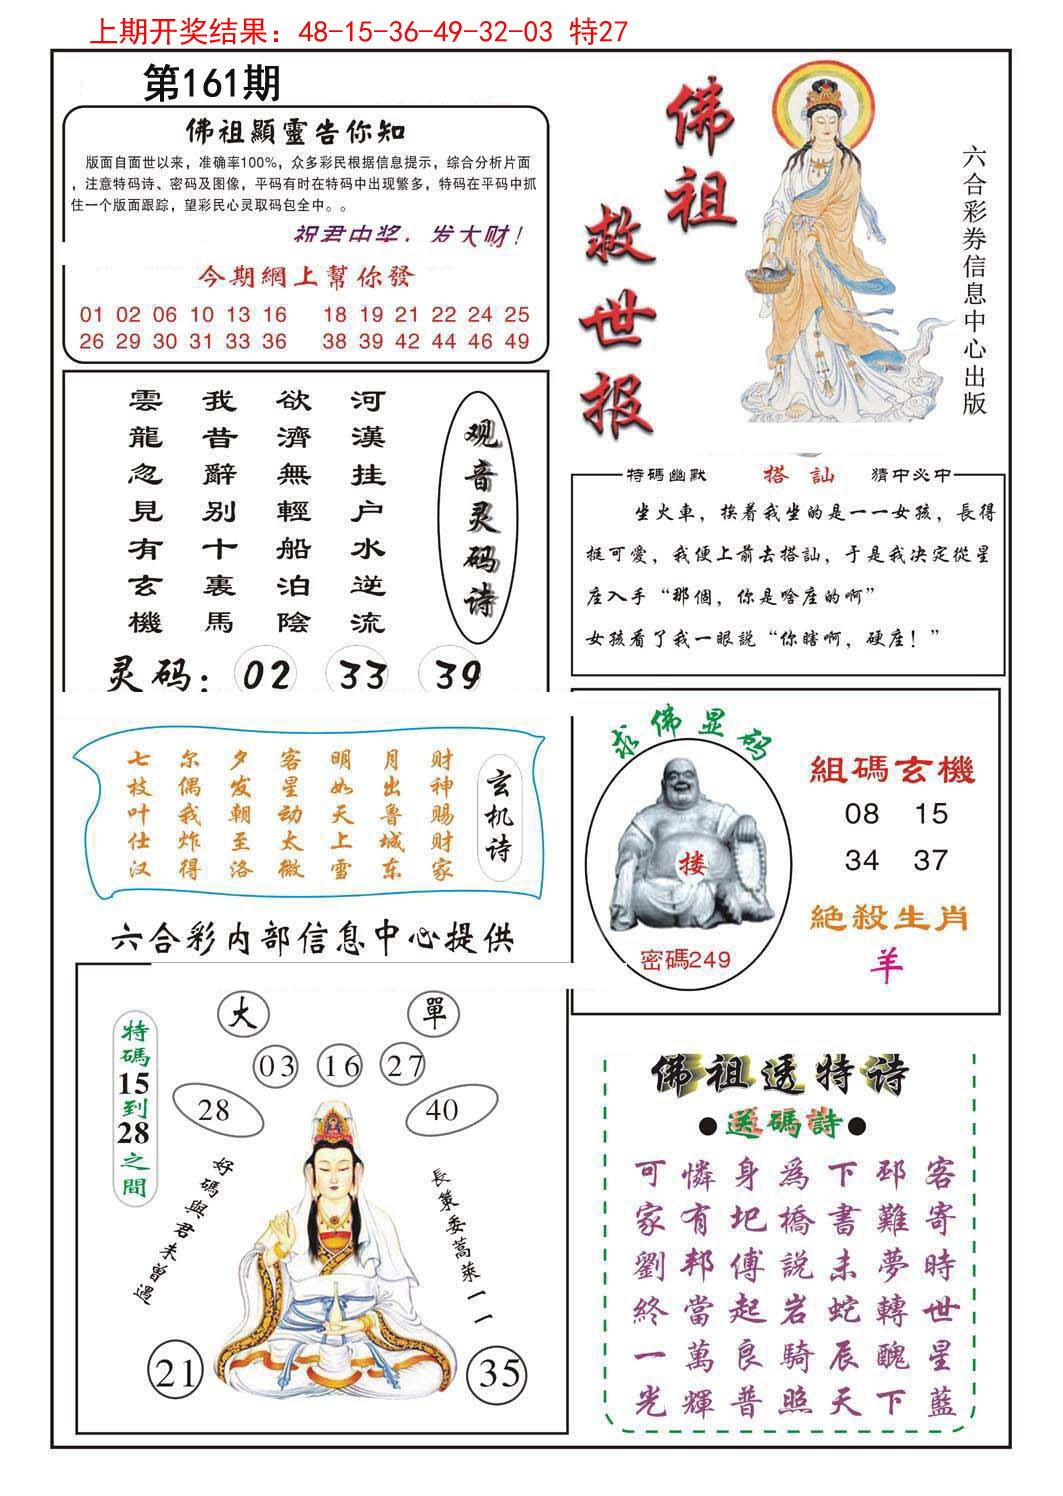 上期开奖结果：48-15-36-49-32-03 特27
第161期
佛祖顯靈告你知
版面自面世以来，准确率100%，众多彩民根据信息提示，综合分析片面
，注意特码诗、密码及图像，平码有时在特码中出现繁多，特码在平码中抓
住一个版面跟踪，望彩民心灵取码包全中。。
祝君中奖，发大财！
今期網上幫你發
01 02 06 10 13 16 18 19 21 22 24 25
26 29 30 31 33 36 38 39 42 44 46 49
佛祖
救世报
六合彩券信息中心出版
观音灵码诗
河漢挂户水逆流
欲濟無輕船泊陰
我昔辭别十裏馬
雲龍忽見有玄機
灵码：02 33 39
特碼幽默 搭訕 猜中必中
坐火車，挨着我坐的是一一女孩，長得
挺可愛，我便上前去搭訕，于是我决定從星
座入手“那個，你是啥座的啊”
女孩看了我一眼説“你瞎啊，硬座！”
玄机诗
财神赐财家
月出鲁城东
明如天上雪
客星动太微
夕发朝至洛
尔偶我炸得
七枝叶仕汉
求佛显码
搂
密碼249
組碼玄機
08 15
34 37
絶殺生肖
羊
六合彩内部信息中心提供
大 單
03 16 27
28 40
特碼15到28之間
好碼與君未曾遇
長策委蒿萊一一
21 35
佛祖透特诗
●送碼詩●
可憐身為下邳客
家有圯橋書難寄
劉邦傅説未夢時
終當起岩蛇轉世
一萬良騎辰醜星
光輝普照天下藍